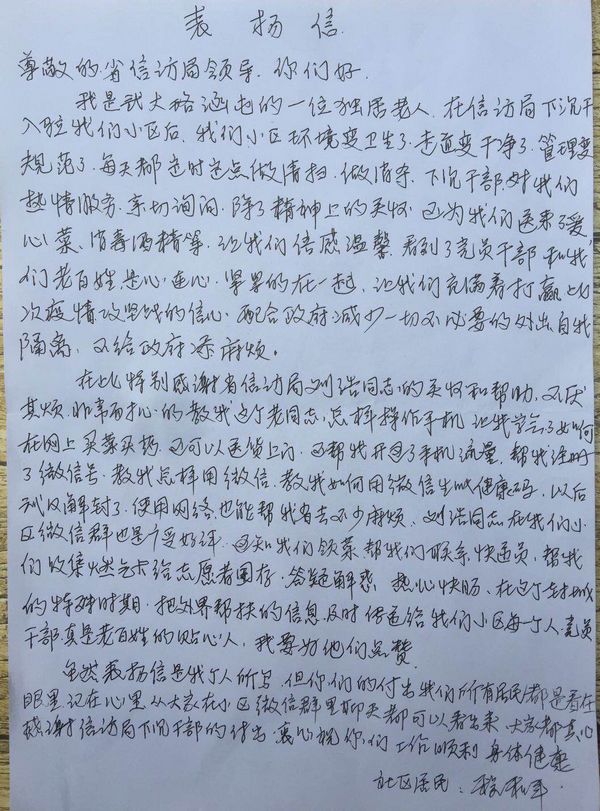 表扬信
尊敬的省信访局领导,你们好,
我是武大 的一位独居老人,在信访局下沉干
入驻我们小区后,我们小区环境变卫生了,走道变干净了,管理变
规范了,每天都定时定点做清扫,做消杀,下沉干部对我们
热情服务,亲切询问,除了精神上的关怀,还为我们送来了爱
心菜、消毒酒精等,让我们倍感温馨,看到了党员干部和我
们老百姓是心连心,紧紧的在一起,让我们充满着打赢此
次疫情攻坚战的信心,配合政府减少一切不必要的外出,自我
隔离,不给政府添麻烦。
在此特别感谢省信访局刘浩同志的关怀和帮助,不厌
其烦,非常耐心的教我这个老同志,怎样操作手机,让我学会了如何
在网上买菜买药,还可以送货上门,还帮我开通了手机流量,帮我注册
了微信号,教我怎样用微信,教我如何用微信生成健康码,以后
到汉解封了,使用网络也能帮我省去不少麻烦,刘浩同志在我们小
区微信群也是广受好评,通知我们领菜,帮我们联系快递员,帮我
们收集燃气卡给志愿者圈存,答疑解惑,热心快肠,在这个封城
的特殊时期,把外界帮扶的信息及时传递给我们小区每个人,党员
干部真是老百姓的贴心人,我要好他们点赞
虽然表扬信是我个人所写,但你们的付出我们所有居民都是看在
眼里,记在心里,从大家在小区微信群里聊天都可以看出来,大家都真心
感谢信访局下沉干部的付出,衷心祝你们工作顺利 身体健康
社区居民: